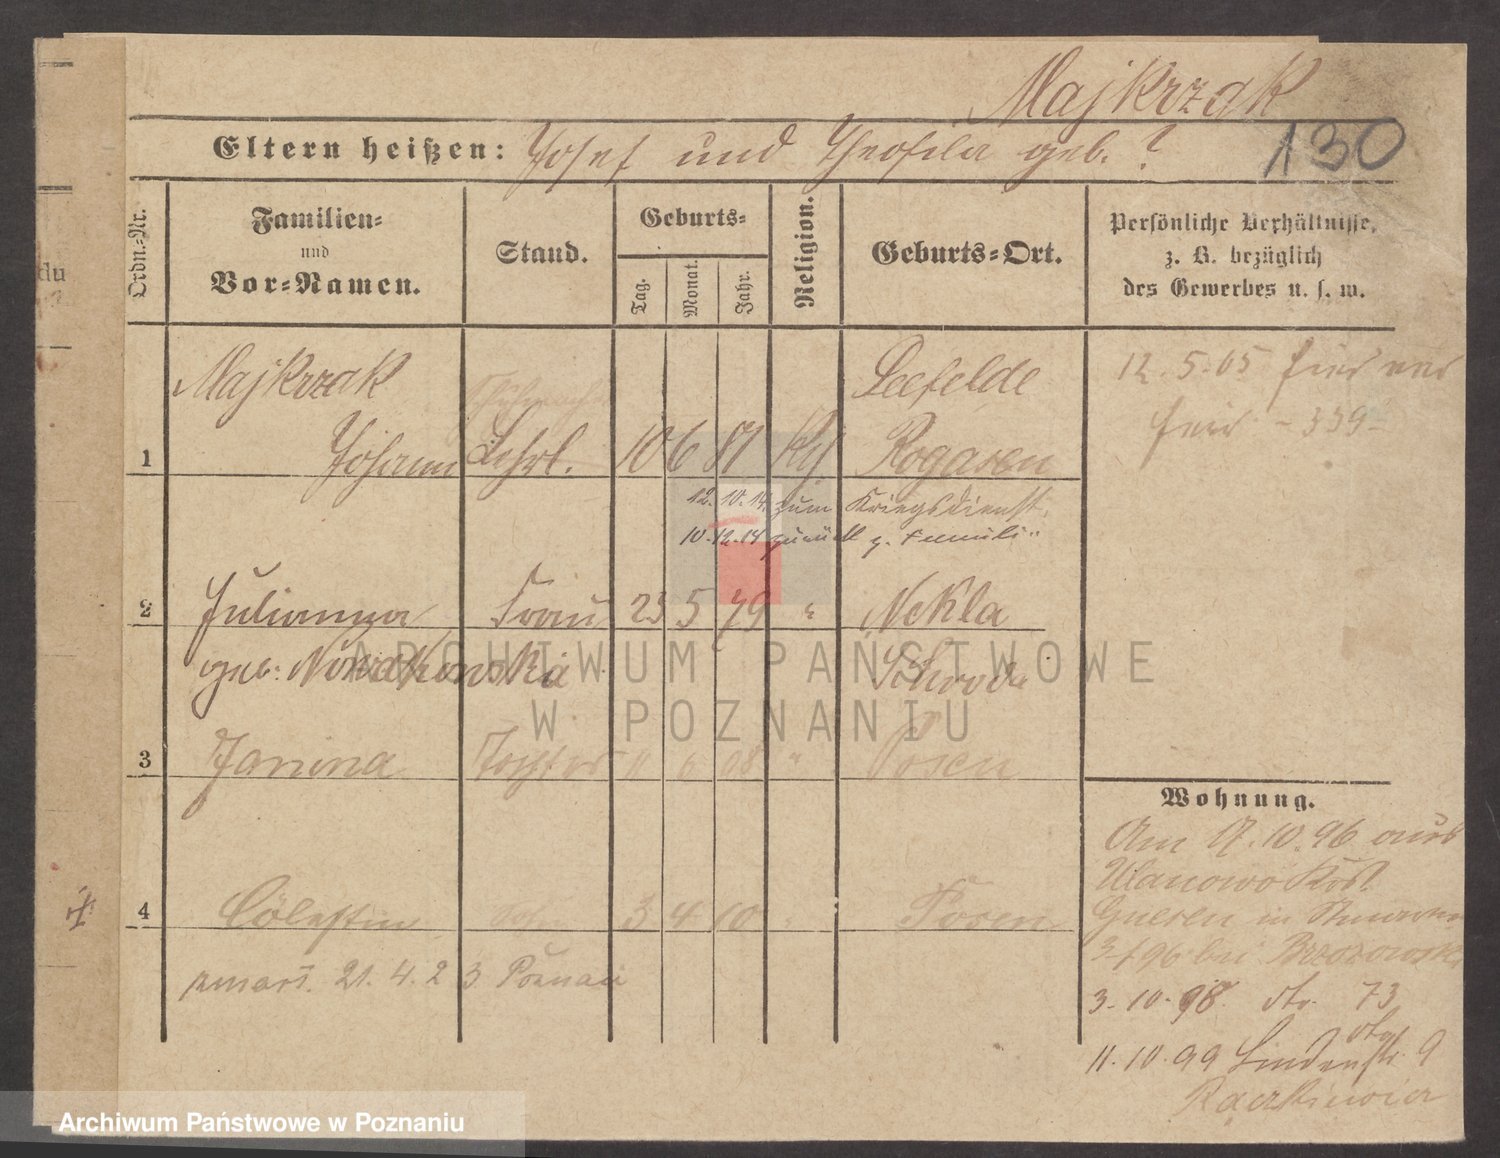 Majkrzak
Eltern heißen: Josef und Theofila geb. ?
130
Ordn.-Nr.
Familien-
und
Vor-Namen.
Stand.
Geburts-
Tag.
Monat.
Jahr.
Religion.
Geburts-Ort.
Persönliche Verhältnisse,
z. B. bezüglich
des Gewerbes u. s. w.
du
Majkrzak
Seefelde
12.5.05
1 Johann Lehrl. 10 6 81 Rogasen
339
12.10.14 zum Kriegsdienst.
10.12.14 zurück z. Familie
2 Julianna Frau 23 5 79 " Nekla
geb. Nowakowska Schroda
3 Janina Tochter 08 " Posen
Wohnung.
Am 17.10.96 aus
Ulanowo Krs.
4 Cölestin 3 4 10 Posen
Gnesen in
bei
zmarł. 21.4.23. Poznań
3.10.98. 73
11.10.99 Lindenstr. 9
Raczkiewicz
ARCHIWUM PAŃSTWOWE
W POZNANIU
Archiwum Państwowe w Poznaniu